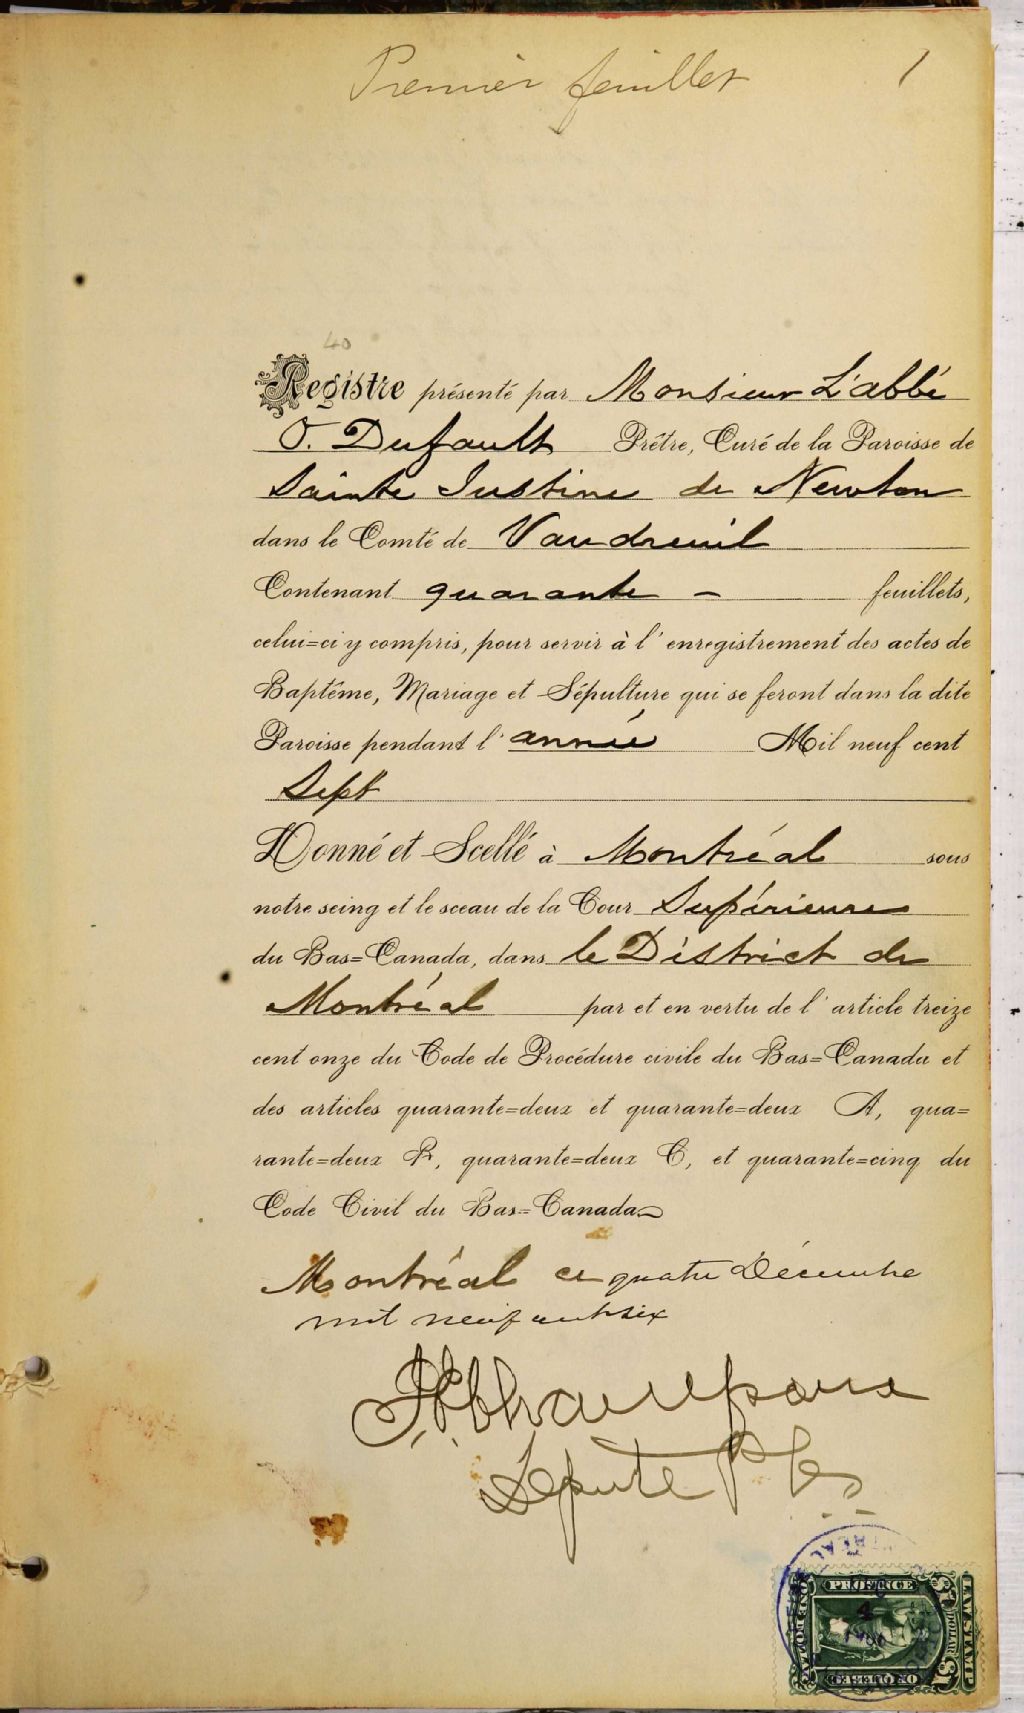 Premier feuillet 1
40
Registre présenté par Monsieur L'abbé
O. Dufault Prêtre, Curé de la Paroisse de
Sainte Justine de Newton
dans le Comté de Vaudreuil
Contenant quarante - feuillets,
celui=ci y compris, pour servir à l'enregistrement des actes de
Baptême, Mariage et Sépulture qui se feront dans la dite
Paroisse pendant l'année Mil neuf cent
Sept
Donné et Scellé à Montréal sous
notre seing et le sceau de la Cour Supérieure
du Bas=Canada, dans le District de
Montréal par et en vertu de l'article treize
cent onze du Code de Procédure civile du Bas=Canada et
des articles quarante=deux et quarante=deux A, qua=
rante=deux B, quarante=deux C, et quarante=cinq du
Code Civil du Bas=Canada
Montréal ce quatre Décembre
mil neuf cent six
Député P
LAW STAMP
PROVINCE
OF QUEBEC
ONE DOLLAR
DOLLAR
$1